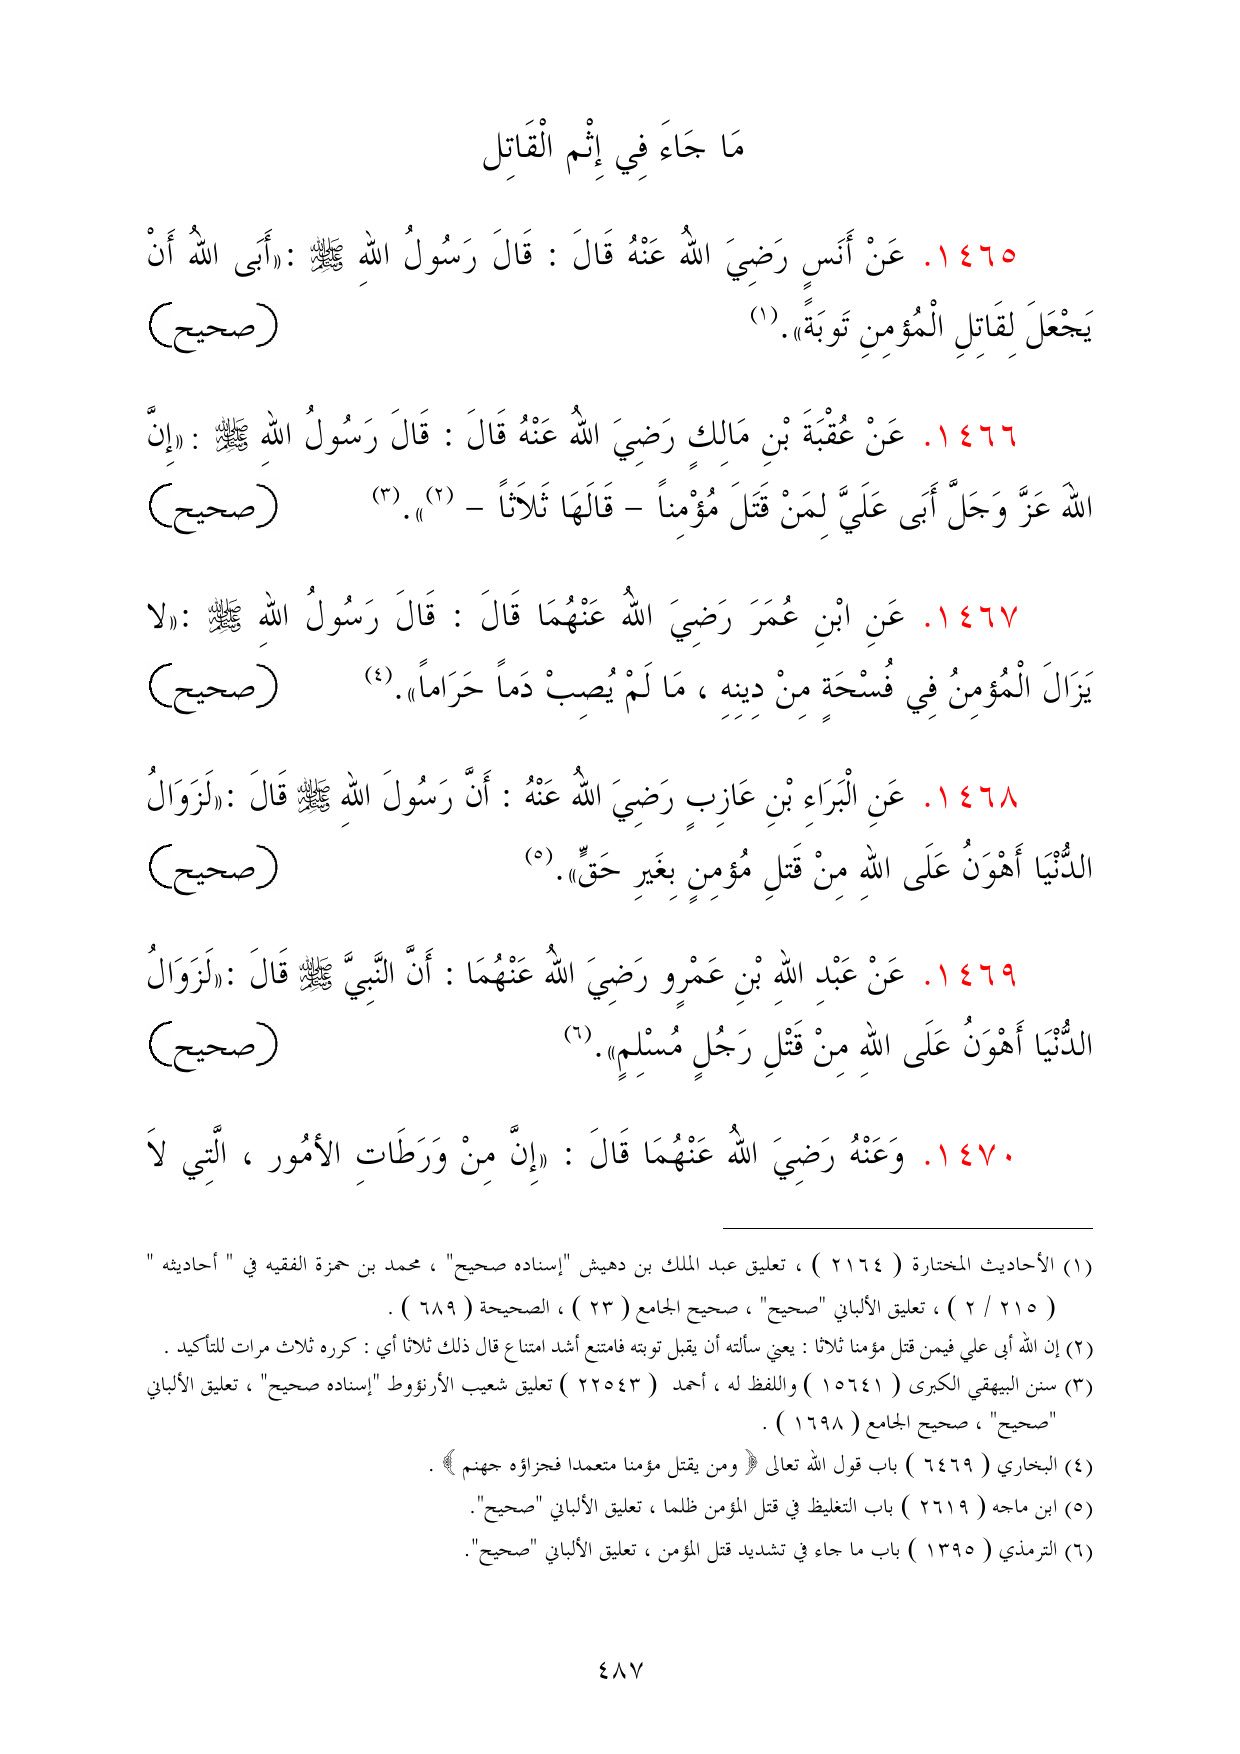 مَا جَاءَ فِي إِثْمِ الْقَاتِل
١٤٦٥. عَنْ أَنَسٍ رَضِيَ اللهُ عَنْهُ قَالَ : قَالَ رَسُولُ اللهِ ﷺ :«أَبَى اللهُ أَنْ
يَجْعَلَ لِقَاتِلِ الْمُؤمِنِ تَوبَةً».(١) (صحيح)
١٤٦٦. عَنْ عُقْبَةَ بْنِ مَالِكٍ رَضِيَ اللهُ عَنْهُ قَالَ : قَالَ رَسُولُ اللهِ ﷺ :«إِنَّ
اللهَ عَزَّ وَجَلَّ أَبَى عَلَيَّ لِمَنْ قَتَلَ مُؤْمِناً – قَالَهَا ثَلَاثاً – (٢)».(٣) (صحيح)
١٤٦٧. عَنِ ابْنِ عُمَرَ رَضِيَ اللهُ عَنْهُمَا قَالَ : قَالَ رَسُولُ اللهِ ﷺ :«لا
يَزَالَ الْمُؤمِنُ فِي فُسْحَةٍ مِنْ دِينِهِ ، مَا لَمْ يُصِبْ دَماً حَرَاماً».(٤) (صحيح)
١٤٦٨. عَنِ الْبَرَاءِ بْنِ عَازِبٍ رَضِيَ اللهُ عَنْهُ : أَنَّ رَسُولَ اللهِ ﷺ قَالَ :«لَزَوَالُ
الدُّنْيَا أَهْوَنُ عَلَى اللهِ مِنْ قَتلِ مُؤمِنٍ بِغَيرِ حَقٍّ».(٥) (صحيح)
١٤٦٩. عَنْ عَبْدِ اللهِ بْنِ عَمْرٍو رَضِيَ اللهُ عَنْهُمَا : أَنَّ النَّبِيَّ ﷺ قَالَ :«لَزَوَالُ
الدُّنْيَا أَهْوَنُ عَلَى اللهِ مِنْ قَتْلِ رَجُلٍ مُسْلِمٍ».(٦) (صحيح)
١٤٧٠. وَعَنْهُ رَضِيَ اللهُ عَنْهُمَا قَالَ : «إِنَّ مِنْ وَرَطَاتِ الأمُور ، الَّتِي لاَ
(١) الأحاديث المختارة ( ٢١٦٤ ) ، تعليق عبد الملك بن دهيش "إسناده صحيح" ، محمد بن حمزة الفقيه في " أحاديثه "
( ٢١٥ / ٢ ) ، تعليق الألباني "صحيح" ، صحيح الجامع ( ٢٣ ) ، الصحيحة ( ٦٨٩ ) .
(٢) إن الله أبى علي فيمن قتل مؤمنا ثلاثا : يعني سألته أن يقبل توبته فامتنع أشد امتناع قال ذلك ثلاثا أي : كرره ثلاث مرات للتأكيد .
(٣) سنن البيهقي الكبرى ( ١٥٦٤١ ) واللفظ له ، أحمد ( ٢٢٥٤٣ ) تعليق شعيب الأرنؤوط "إسناده صحيح" ، تعليق الألباني
"صحيح" ، صحيح الجامع ( ١٦٩٨ ) .
(٤) البخاري ( ٦٤٦٩ ) باب قول الله تعالى ﴿ ومن يقتل مؤمنا متعمدا فجزاؤه جهنم ﴾ .
(٥) ابن ماجه ( ٢٦١٩ ) باب التغليظ في قتل المؤمن ظلما ، تعليق الألباني "صحيح".
(٦) الترمذي ( ١٣٩٥ ) باب ما جاء في تشديد قتل المؤمن ، تعليق الألباني "صحيح".
٤٨٧